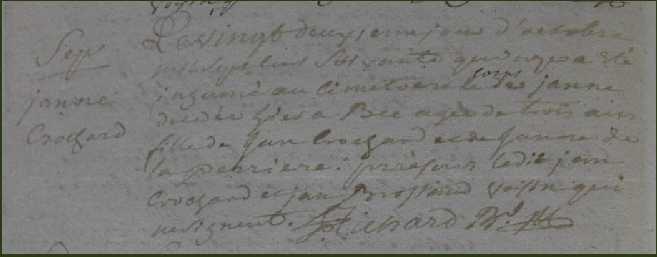 Sep
janne
Crochard
Le vingt deuxieme jour d'octobre
mil sept cent soixante quinze a eté
inhumé au cimetiere le corps de janne
decedé hier a agée de trois ans
fille de jan Crochard et de janne de
la perriere : presens ledit jan
Crochard et jan Brossard voisin qui
ne signent. Richard